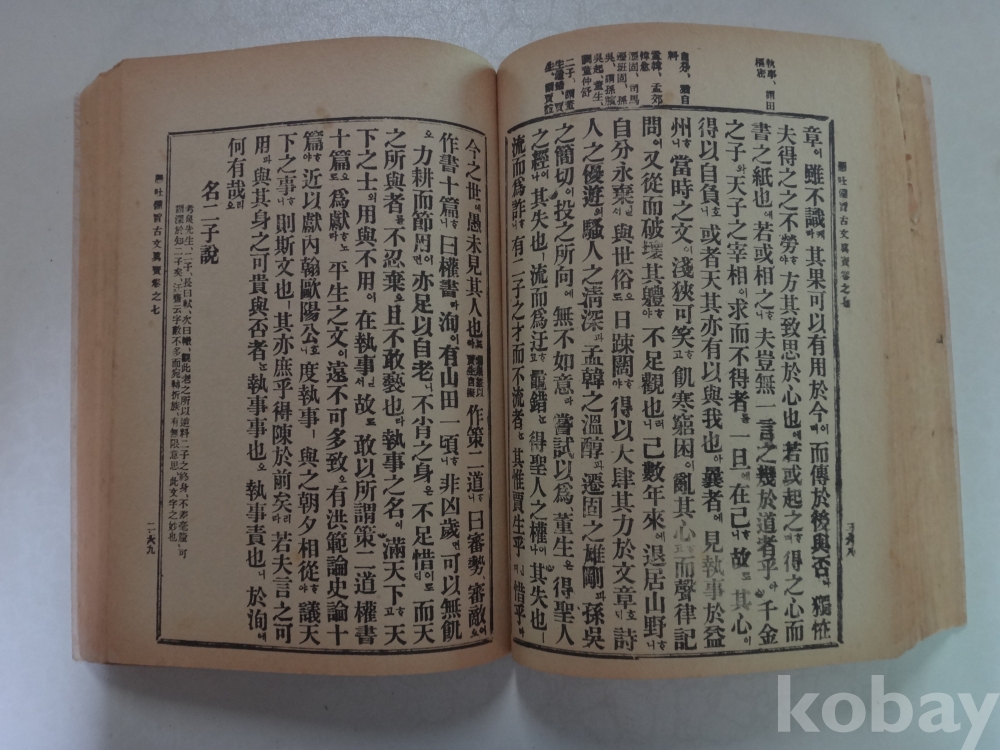 執事、謂田
樞密
章이 雖不識케라 其果可以有用於今이며 而傳於後與否아 獨恠
夫得之之不勞하야 方其致思於心也에 若或起之하며 得之心而
書之紙也에 若或相之하니 夫豈無一言之幾於道者乎아 千金
之子와 天子之宰相이 求而不得者를 一旦에 在己하니 故로 其心이
得以自負하니 或者天其亦有以與我也아 曩者에 見執事於益
州하니 當時之文이 淺狹可笑고 飢寒窮困이 亂其心하고 而聲律記
問이 又從而破壞其軆하야 不足觀也러니 已數年來에 退居山野하니
自分永棄하고 與世俗으로 日踈闊하야 得以大肆其力於文章하니 詩
人之優遊와 騷人之淸深과 孟韓之溫醇과 遷固之雄剛과 孫吳
之簡切이 投之所向에 無不如意라 嘗試以爲董生은 得聖人
之經이나 其失也ㅣ 流而爲迂오 鼂錯는 得聖人之權이나 其失也ㅣ
流而爲詐하니 有二子之才而不流者는 其惟賈生乎ㄴ저 惜乎라
今之世에 愚未見其人也로라 作策二道하니 曰審勢、審敵이오
作書十篇하니 曰權書라 洵이 有山田一頃하니 非凶歲면 可以無飢
오 力耕而節用이면 亦足以自老니 不肖之身은 不足惜이로되 而天
之所與者를 不忍棄오 且不敢褻也라 執事之名이 滿天下하고 天
下之士의 用與不用이 在執事니 故로 敢以所謂策二道權書
十篇으로 爲獻하노라 平生之文이 遠不可多致오 有洪範論史論十
篇하야 近以獻內翰歐陽公호니 度執事ㅣ 與之朝夕相從하야 議天
下之事ㅣ니 則斯文也ㅣ 其亦庶乎得陳於前矣라 若夫言之可
用과 與其身之可貴與否者는 執事事也오 執事責也니 於洵에
何有哉리오
名二子說
老泉先生、二子、長曰軾、次曰轍、觀此老之所以逆料二子之終身、不差毫釐、可
謂深於知二子矣、迂齋云字數不多而宛轉折旋、有無限意思、此文字之妙也
懸吐備旨古文眞寶卷之七
二六九
kobay